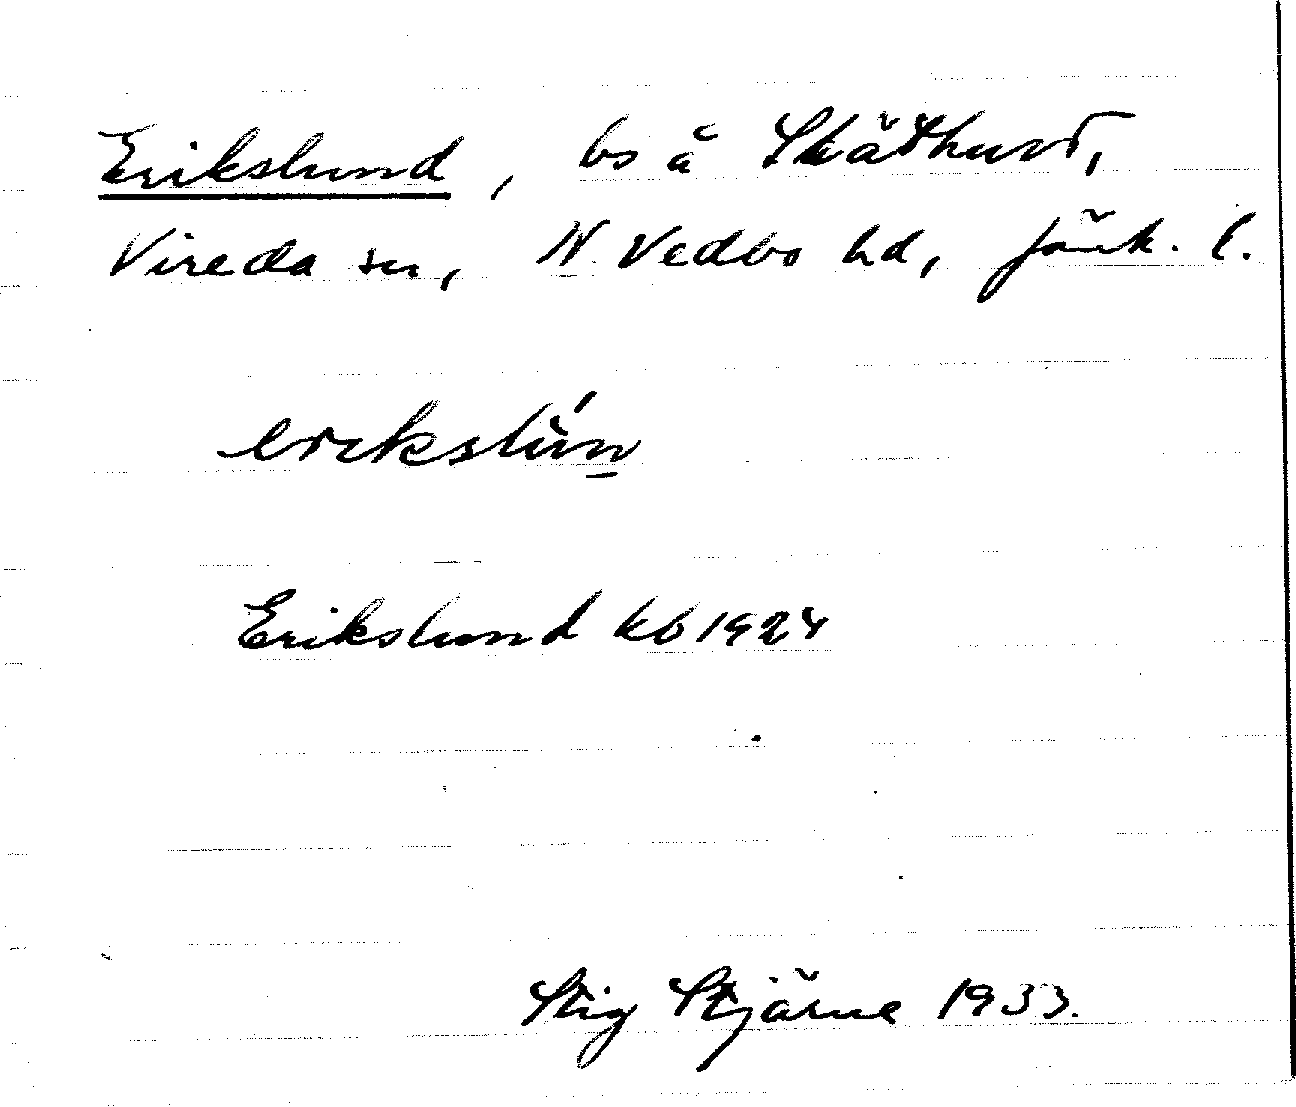 Erikslund, bs å Skäthult,
Vireda sn, N. Vedbo hd, Jönk. l.
erikslùn
Erikslund kb 1924
Stig Stjärne 1933.